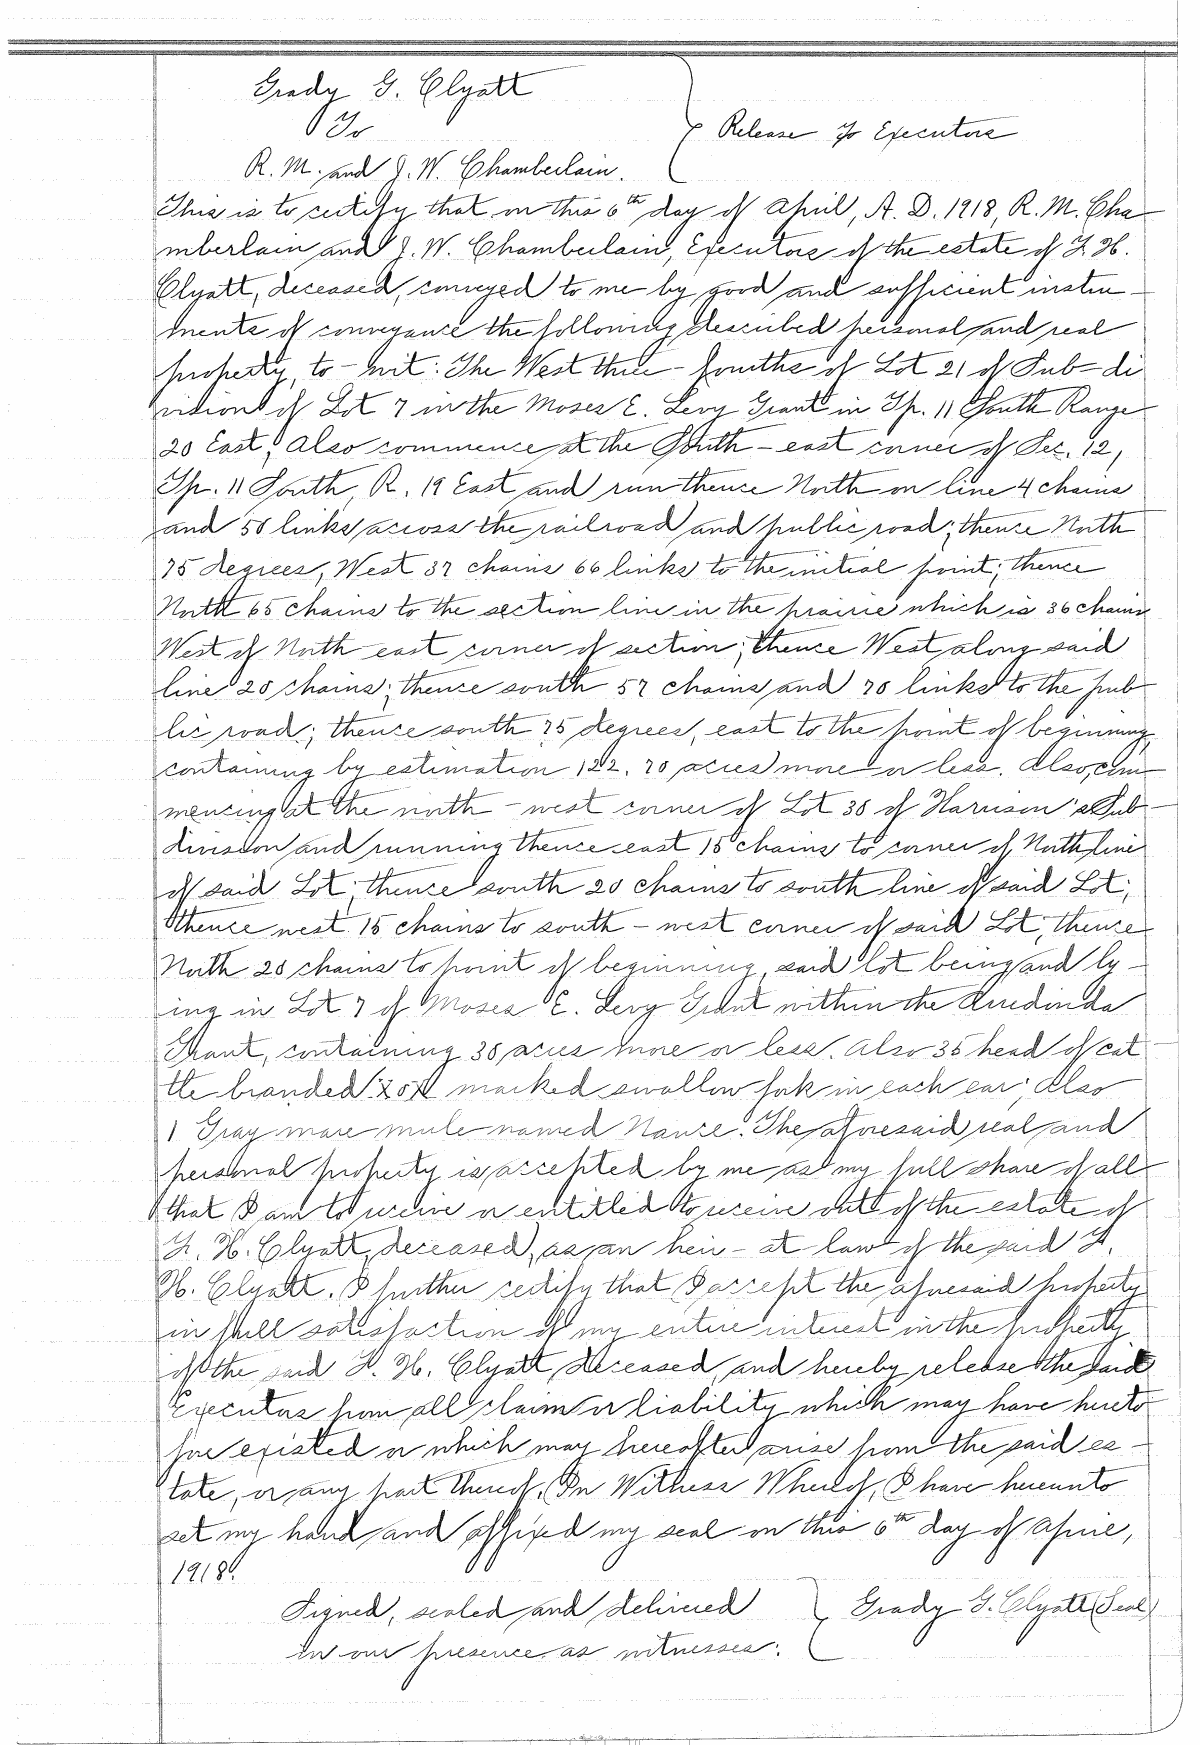 Grady G. Clyatt
To
Release to Executors
R. M. and J. W. Chamberlain.
This is to certify that on this 6th day of April, A. D. 1918, R. M. Cha
mberlain and J. W. Chamberlain, Executors of the estate of H.
Clyatt, deceased, conveyed to me by good and sufficient instru-
ments of conveyance the following described personal and real
property, to-wit: The West three-fourths of Lot 21 of Sub-di
vision of Lot 7 in the Moses E. Levy Grant in Tp. 11 South Range
20 East; Also commence at the South-east corner of Sec. 12,
Tp. 11 South, R. 19 East and run thence North on line 4 chains
and 50 links across the railroad and public road; thence North
75 degrees, West 37 chains 66 links to the initial point; thence
North 65 chains to the section line in the prairie which is 36 chains
West of North east corner of section; thence West along said
line 20 chains; thence south 57 chains and 70 links to the pub
lic road; thence south 75 degrees, east to the point of beginning,
containing by estimation 122.70 acres more or less. Also, com
mencing at the north-west corner of Lot 38 of Harrison's Sub-
division and running thence east 15 chains to corner of North line
of said Lot; thence south 20 chains to south line of said Lot;
thence west 15 chains to south-west corner of said Lot; thence
North 20 chains to point of beginning, said lot being and ly-
ing in Lot 7 of Moses E. Levy Grant within the Arredinda
Grant, containing 30 acres more or less. Also 35 head of cat
tle branded marked swallow fork in each ear; Also
1 Gray mare mule named Nance. The aforesaid real and
personal property is accepted by me as my full share of all
that I am to receive or entitled to receive out of the estate of
H. Clyatt, deceased, as an heir-at law of the said
H. Clyatt. I further certify that I accept the aforesaid property
in full satisfaction of my entire interest in the property
of the said H. Clyatt, deceased, and hereby release the said
Executors from all claim or liability which may have hereto
fore existed or which may hereafter arise from the said es-
tate, or any part thereof. In Witness Whereof, I have hereunto
set my hand and affixed my seal on this 6th day of April,
1918.
Signed, sealed and delivered
Grady G. Clyatt (Seal)
in our presence as witnesses: